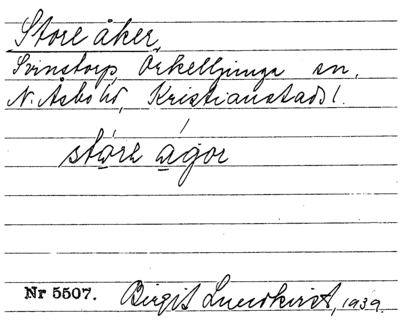 Store åker,
Svinstorp, Örkelljunga sn.
N. Åsbo hd, Kristianstads l.
stǻre ágor
Nr 5507. Birgit Lundkvist, 1939.